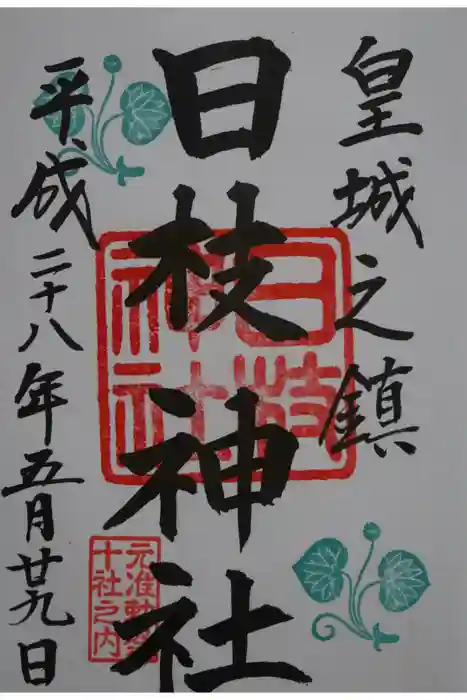 皇城之鎮
日枝神社
平成二十八年五月廿九日
日枝
神社
元准勅祭
十社之内